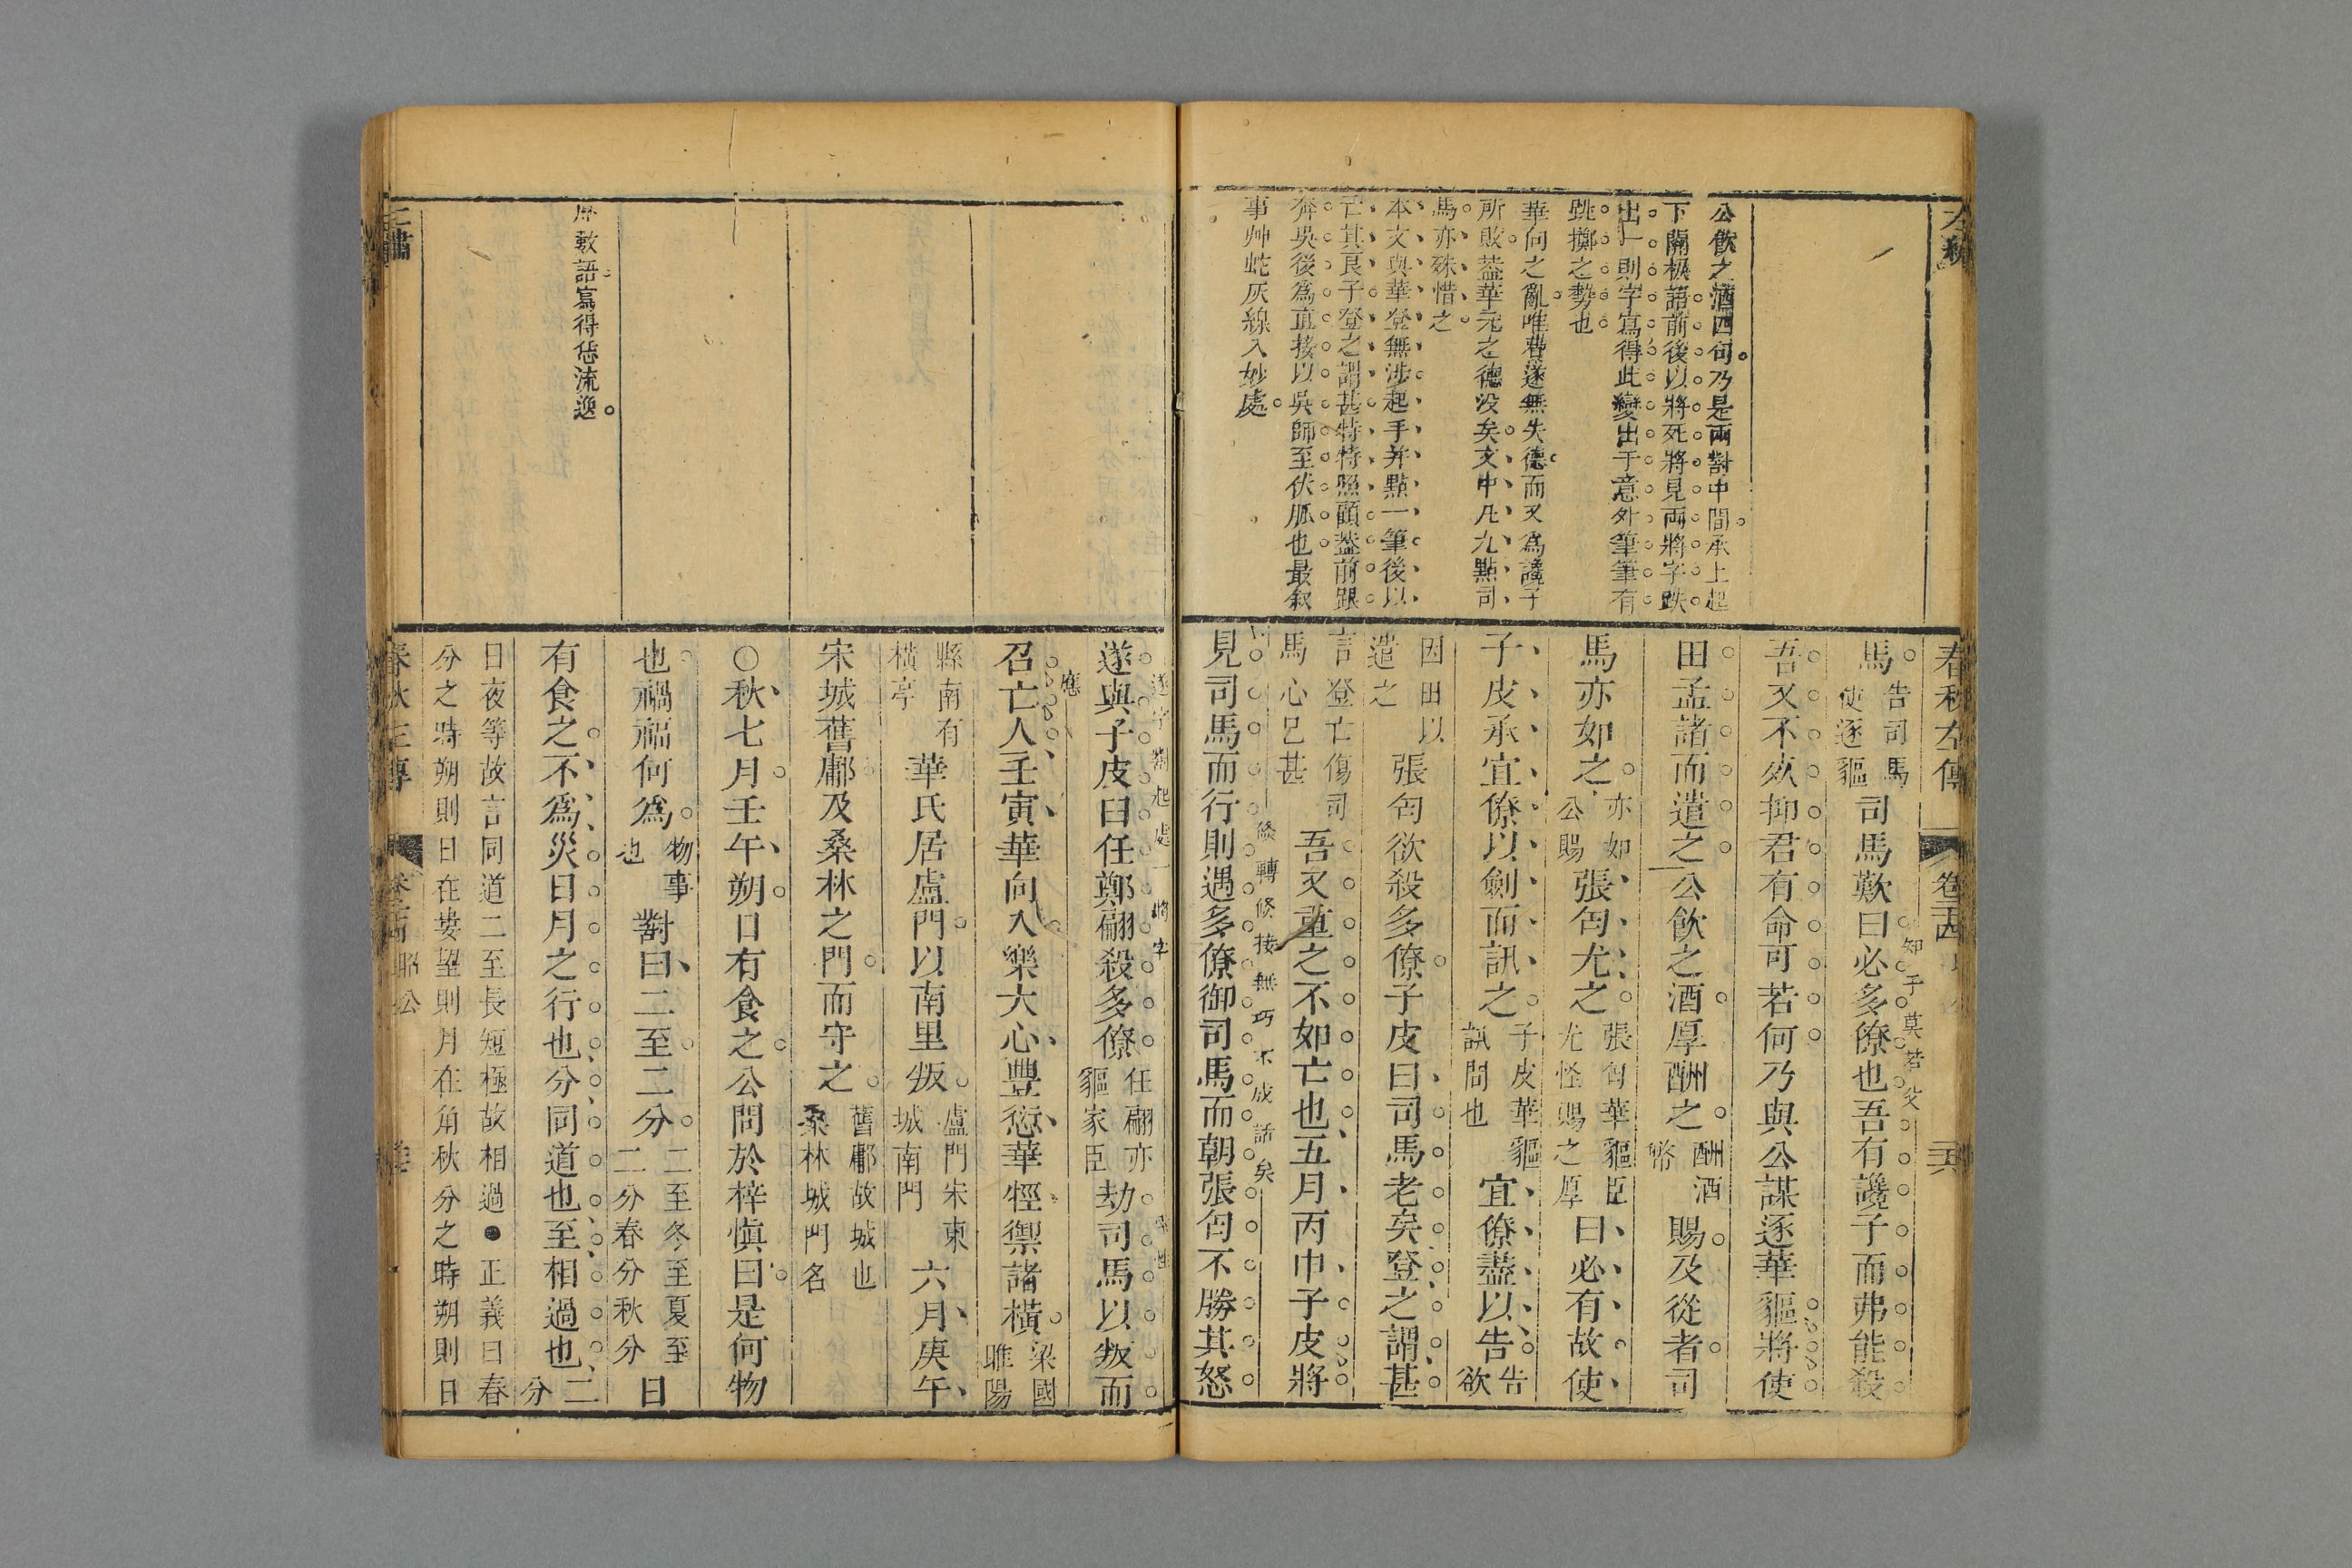 春秋左傳
公飲之酒四句乃是兩對中間承上起
下關極語前後以將死將見兩將字跌
出一則字寫得此變出于意外筆筆有
跳擲之勢也
華向之亂唯費遂無失德而又為讒子
所敗葢華元之德没矣文中凡九點司
馬亦殊惜之
本文與華登無涉起手并點一筆後以
亡其良子登之謂甚特特照顧葢前跟
奔吳後為直接以吳師至伏脈也最叙
事艸蛇灰線入妙處
馬告司馬使逐貙司馬歎曰必多僚也吾有讒子而弗能殺
知子莫若父
吾又不死抑君有命可若何乃與公謀逐華貙將使
田孟諸而遣之公飲之酒厚酬之酬酒幣賜及從者司
馬亦如之亦如公賜張匄尤之張匄華貙臣尤怪賜之厚曰必有故使
子皮承宜僚以劍而訊之子皮華貙訊問也宜僚盡以告告欲
因田以遣之張匄欲殺多僚子皮曰司馬老矣登之謂甚
言登亡傷司馬心已甚吾又重之不如亡也五月丙申子皮將
見司馬而行則遇多僚御司馬而朝張匄不勝其怒
倏轉倏接無巧不成話矣
遂與子皮臼任鄭翩殺多僚任翩亦貙家臣劫司馬以叛而
召亡人壬寅華向入樂大心豐愆華牼禦諸橫梁國睢陽
應
縣南有橫亭華氏居盧門以南里叛盧門宋東城南門六月庚午
宋城舊鄘及桑林之門而守之舊鄘故城也桑林城門名
○秋七月壬午朔日有食之公問於梓慎曰是何物
也禍福何為物事也對曰二至二分二至冬至夏至二分春分秋分日
有食之不為災日月之行也分同道也至相過也二分
日夜等故言同道二至長短極故相過●正義曰春
分之時朔則日在婁望則月在角秋分之時朔則日
敘語寫得恁流逸